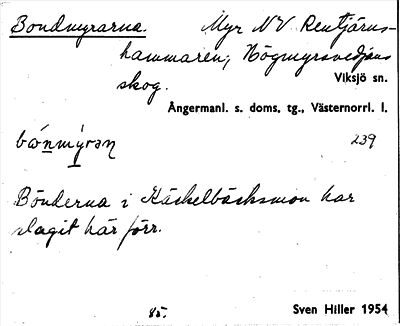 Bondmyrarna. Myr NV Rentjärns-
hammaren, Högmyrsvedjans
skog. Viksjö sn.
Ångermanl. s. doms. tg., Västernorrl. l.
239
Bönderna i Häckelbäcksmon har
slagit här förr.
85. Sven Hiller 1954